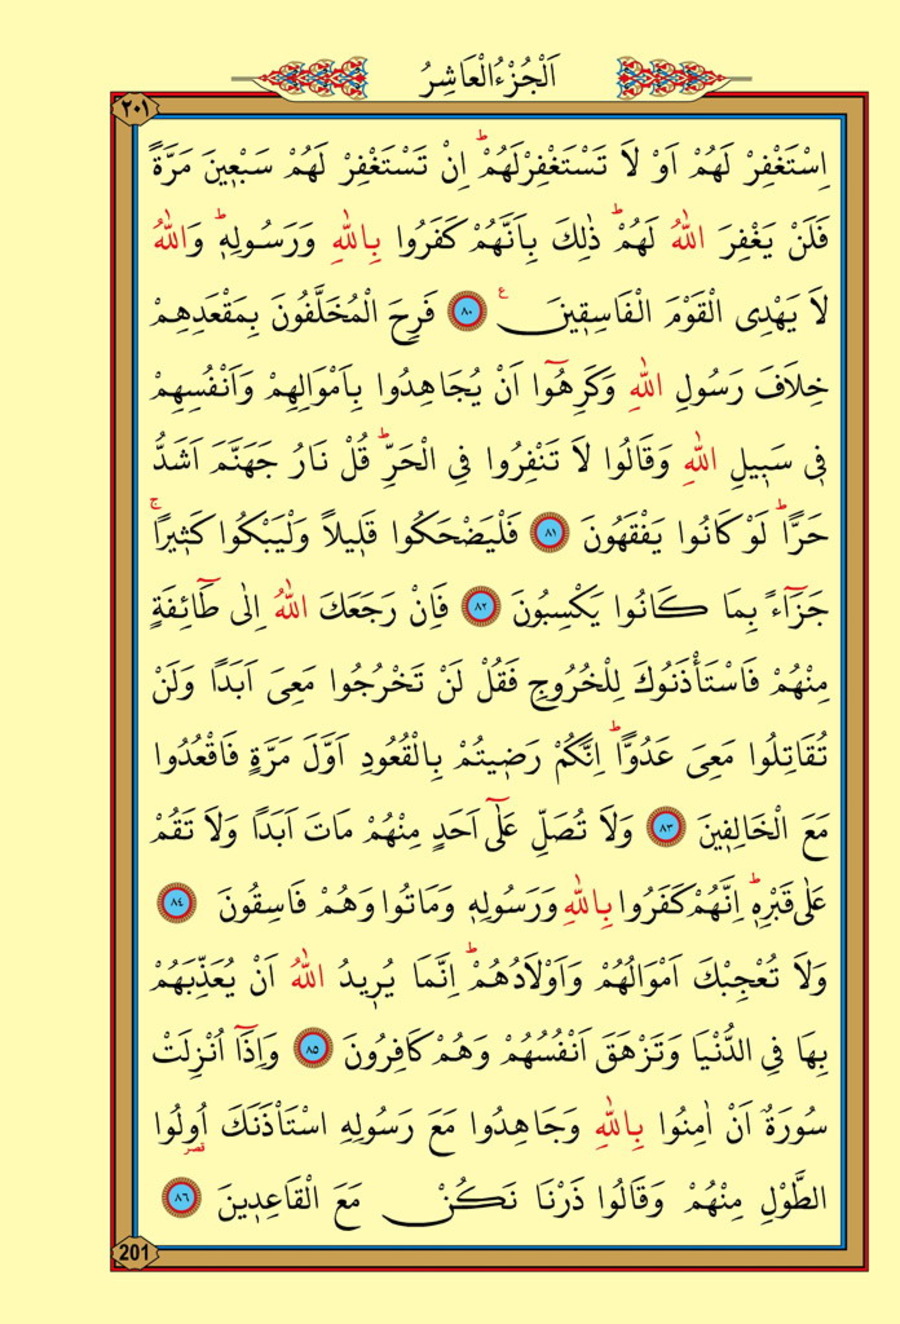 اَلْجُزْءُ الْعَاشِرُ
٢٠١
اِسْتَغْفِرْ لَهُمْ اَوْ لَا تَسْتَغْفِرْ لَهُمْۜ اِنْ تَسْتَغْفِرْ لَهُمْ سَبْعٖينَ مَرَّةً
فَلَنْ يَغْفِرَ اللّٰهُ لَهُمْۜ ذٰلِكَ بِاَنَّهُمْ كَفَرُوا بِاللّٰهِ وَرَسُولِهٖۜ وَاللّٰهُ
لَا يَهْدِى الْقَوْمَ الْفَاسِقٖينَ ﴿٨٠﴾ فَرِحَ الْمُخَلَّفُونَ بِمَقْعَدِهِمْ
خِلَافَ رَسُولِ اللّٰهِ وَكَرِهُٓوا اَنْ يُجَاهِدُوا بِاَمْوَالِهِمْ وَاَنْفُسِهِمْ
فٖى سَبٖيلِ اللّٰهِ وَقَالُوا لَا تَنْفِرُوا فِى الْحَرِّۜ قُلْ نَارُ جَهَنَّمَ اَشَدُّ
حَرًّاۜ لَوْ كَانُوا يَفْقَهُونَ ﴿٨١﴾ فَلْيَضْحَكُوا قَلٖيلًا وَلْيَبْكُوا كَثٖيرًاۚ
جَزَٓاءً بِمَا كَانُوا يَكْسِبُونَ ﴿٨٢﴾ فَاِنْ رَجَعَكَ اللّٰهُ اِلٰى طَٓائِفَةٍ
مِنْهُمْ فَاسْتَأْذَنُوكَ لِلْخُرُوجِ فَقُلْ لَنْ تَخْرُجُوا مَعِىَ اَبَدًا وَلَنْ
تُقَاتِلُوا مَعِىَ عَدُوًّاۜ اِنَّكُمْ رَضٖيتُمْ بِالْقُعُودِ اَوَّلَ مَرَّةٍ فَاقْعُدُوا
مَعَ الْخَالِفٖينَ ﴿٨٣﴾ وَلَا تُصَلِّ عَلٰٓى اَحَدٍ مِنْهُمْ مَاتَ اَبَدًا وَلَا تَقُمْ
عَلٰى قَبْرِهٖۜ اِنَّهُمْ كَفَرُوا بِاللّٰهِ وَرَسُولِهٖ وَمَاتُوا وَهُمْ فَاسِقُونَ ﴿٨٤﴾
وَلَا تُعْجِبْكَ اَمْوَالُهُمْ وَاَوْلَادُهُمْۜ اِنَّمَا يُرٖيدُ اللّٰهُ اَنْ يُعَذِّبَهُمْ
بِهَا فِى الدُّنْيَا وَتَزْهَقَ اَنْفُسُهُمْ وَهُمْ كَافِرُونَ ﴿٨٥﴾ وَاِذَٓا اُنْزِلَتْ
سُورَةٌ اَنْ اٰمِنُوا بِاللّٰهِ وَجَاهِدُوا مَعَ رَسُولِهِ اسْتَأْذَنَكَ اُولُوا
قصر
الطَّوْلِ مِنْهُمْ وَقَالُوا ذَرْنَا نَكُنْ مَعَ الْقَاعِدٖينَ ﴿٨٦﴾
201